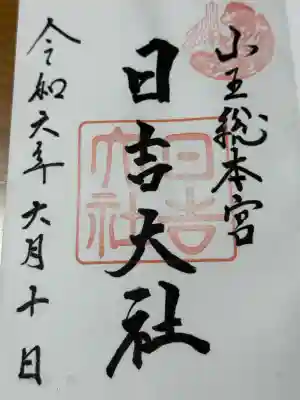 山王総本宮
日吉大社
日吉大社
令和六年六月十日